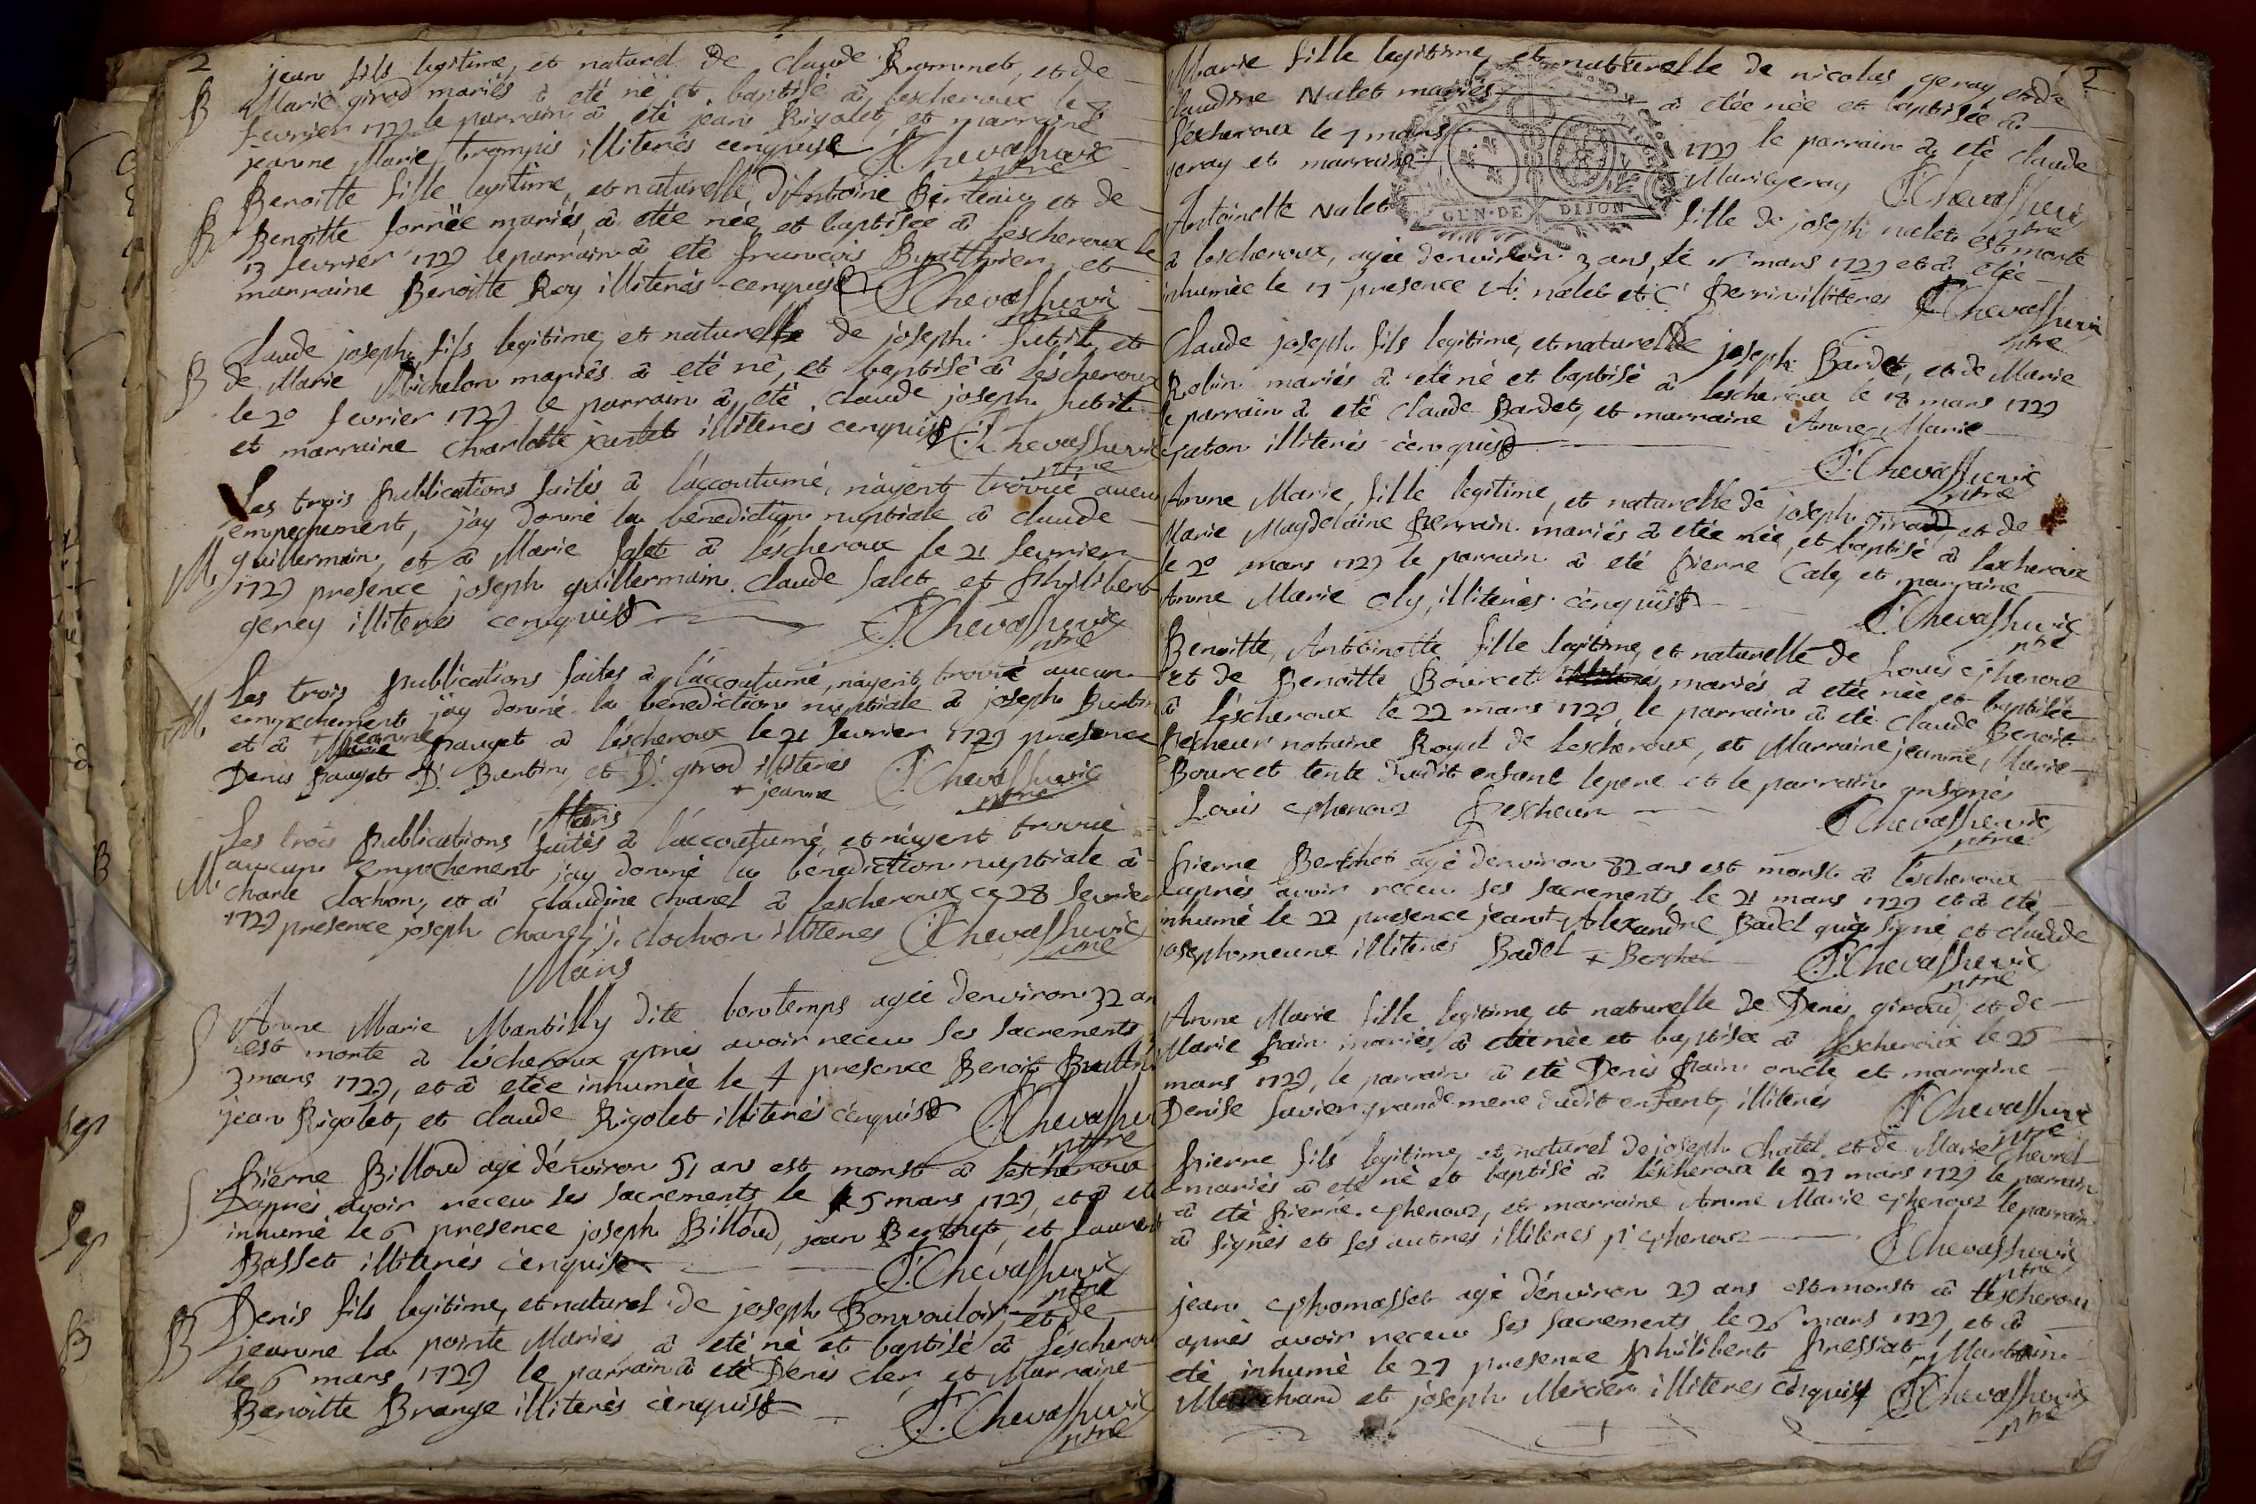 2
jean fils legitime, et naturel de claude Rommet, et de
B Marie girod mariés à eté né et baptisé à lescheroux le 8
fevrier 1729 le parrain à eté jean Rigolet, et marraine
jeanne Marie trompis illiterés cenquis Chevassuvic
ptre
Benoitte fille legitime, et naturelle d'Antoine et de
B Benoitte mariés, à etée née et baptisée à lescheroux le
13 fevrier 1729 le parrain à eté francois Buatthier, et
marraine Benoitte Roy illiterés cenquis Chevassuvic
ptre
Claude joseph fils legitime, et naturelle de joseph et
B de Marie Michelon mariés à eté né, et baptisé à léscheroux
le 20 fevrier 1729 le parrain à eté claude joseph
et marraine charlotte illiterés cenquis Chevassuvic
ptre
Les trois publications faites à l'accoutumé, n'ayent trouvé aucun
empechement, j'ay donné la benediction nuptiale à claude
M guillermain, et à Marie Salet à lescheroux le 21 fevrier
1729 presence joseph guillermain claude Salet et philibert
gerey illiterés cenquis Chevassuvic
ptre
Les trois publications faites à l'accoutumé, n'ayent trouvé aucun
M empechement j'ay donné la benediction nuptiale à joseph Burtin
+ jeanne
et à Marie pauget à léscheroux le 21 fevrier 1729 presence
Denis pauget D. Burtin, et D. girod illiterés Chevassuvic
+ jeanne ptre
Mars
Les trois publications faites à l'accoutumé, et n'ayent trouvé
M aucun empechement j'ay donné la benediction nuptiale à
charle clochon, et à claudine chanel à lescheroux ce 28 fevrier
1729 presence joseph chanel, j. clochon illiterés Chevassuvic
ptre
Mars
S Anne Marie Mantilly dite bontemps agée d'environ 32 an
est morte à léscheroux apres avoir receu ses sacrements
3 mars 1729, et à etée inhumée le 4 presence Benoit
jean Rigolet, et claude Rigolet illiterés cenquis Chevassuvic
ptre
pierre Billoud agé d'environ 51 ans est mort à lescheroux
S après avoir receu ses sacrements, le 5 mars 1729, et à eté
inhumé le 6 presence joseph Billoud, jean Berthet, et laurent
Basset illiterés cenquis Chevassuvic
ptre
Denis fils legitime, et naturel de joseph Bonvouloir et de
B jeanne la pointe Mariés à eté né et baptisé à léscheroux
le 6 mars 1729 le parrain à eté Denis cler, et Marraine
Benoitte Brange illiterés cenquis Chevassuvic
ptre
2
Marie fille legitime, et naturelle de nicolas geray, et de
claudine Nalet mariés à etée née et baptisée à
léscheroux le 7 mars 1729 le parrain à eté claude
geray et marraine Marie geray Chevassuvic
ptre
GEN. DE DIJON
Antoinette Nalet fille de joseph nalet est morte
à lescheroux, agée d'environ 3 ans, le 16 mars 1729 et à etée
inhumée le 17 presence A. nalet et C. perrin illiteres Chevassuvic
ptre
Claude joseph fils legitime, et naturel de joseph Bardet, et de Marie
Robin mariés à eté né et baptisé à lescheroux le 18 mars 1729
le parrain à eté claude Bardet, et marraine Anne Marie
gaton illiterés cenquis
Chevassuvic
ptre
Anne Marie, fille legitime, et naturelle de joseph giroud et de
Marie Magdelaine perrin mariés à etée née, et baptisé à lescheroux
le 20 mars 1729 le parrain à eté pierre Caly et marraine
Anne Marie oly, illiterés cenquis Chevassuvic
ptre
Benoitte, Antoinette fille legitime, et naturelle de Louis ephenoux
et de Benoitte Bourcet mariés, à etée née et baptisée
à léscheroux le 22 mars 1729, le parrain à eté claude Benoit
pescheur notaire Royal de lescheroux, et Marraine jeanne, Marie
Bourcet tente dudit enfant le pere et le parrain ont signés
Louis ephenoux pescheur
Chevassuvic
ptre
pierre Berthet agé d'environ 82 ans est mort à lescheroux
apres avoir receu ses sacrements, le 21 mars 1729 et à eté
inhumé le 22 presence jean + Alexandre Badel qui à signé et claude
joseph illiterés Badel + Berthet Chevassuvic
ptre
Anne Marie fille legitime et naturelle de Denis giroud, et de
Marie pain mariés, à etée née et baptisée à léscheroux le 25
mars 1729, le parrain à eté Denis pain oncle et marraine
Denise Savier grande mere dudit enfant, illiterés Chevassuvic
ptre
pierre fils legitime, et naturel de joseph chatel et de Marie chevrel
mariés à eté né et baptisé à léscheroux le 27 mars 1729 le parrain
à eté pierre ephenoux, et marraine Anne Marie ephenoux le parrain
à signés et les autres illiteres p. ephenoux Chevassuvic
ptre
jean ephomasset agé d'environ 29 ans est mort à lescheroux
après avoir receu ses sacrements, le 26 mars 1729, et à
eté inhumé le 27 presence philibert pressiat, Martin
Marchand et joseph Mercier illiteres cenquis Chevassuvic
ptre